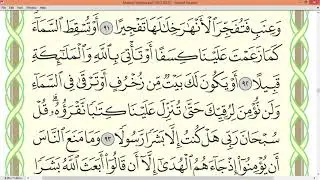 وَعِنَبٍ فَتُفَجِّرَ ٱلْأَنْهَٰرَ خِلَٰلَهَا تَفْجِيرًا ٩١ أَوْ تُسْقِطَ ٱلسَّمَآءَ
كَمَا زَعَمْتَ عَلَيْنَا كِسَفًا أَوْ تَأْتِيَ بِٱللَّهِ وَٱلْمَلَٰٓئِكَةِ
قَبِيلًا ٩٢ أَوْ يَكُونَ لَكَ بَيْتٌ مِّن زُخْرُفٍ أَوْ تَرْقَىٰ فِي ٱلسَّمَآءِ
وَلَن نُّؤْمِنَ لِرُقِيِّكَ حَتَّىٰ تُنَزِّلَ عَلَيْنَا كِتَٰبًا نَّقْرَؤُهُۥ ۗ قُلْ
سُبْحَانَ رَبِّي هَلْ كُنتُ إِلَّا بَشَرًا رَّسُولًا ٩٣ وَمَا مَنَعَ ٱلنَّاسَ
أَن يُؤْمِنُوٓا۟ إِذْ جَآءَهُمُ ٱلْهُدَىٰٓ إِلَّآ أَن قَالُوٓا۟ أَبَعَثَ ٱللَّهُ بَشَرًا